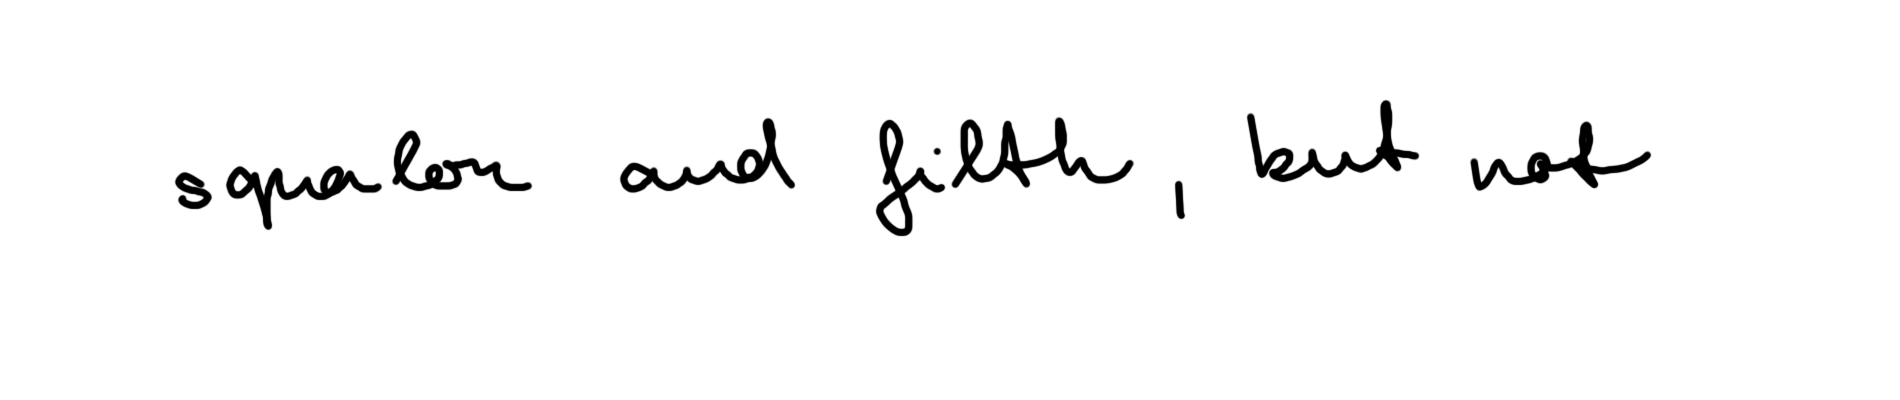 squalor and filth, but not